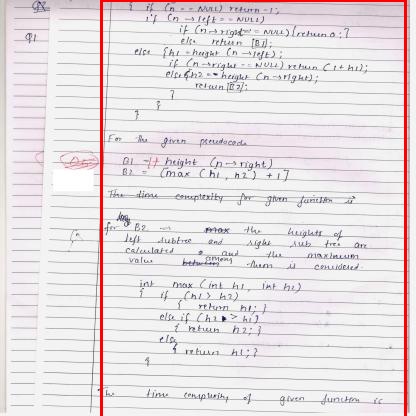 Q1
{ if (n == NULL) return -1;
if (n → left == NULL)
if (n → right == NULL) {return 0;}
else return [B1];
else { h1 = height (n → left);
if (n → right == NULL) return (1+h1);
else { h2 = height (n → right);
return [B2];
}
}
}
For the given pseudocode
B1 = 1+ height (n → right)
B2 = (max (h1, h2) + 1]
The time complexity for given function is
for B2 → max the heights of
left subtree and right sub tree are
calculated and the maximum
value between among them is considered.
int max (int h1, int h2)
{ if (h1 > h2)
{ return h1; }
else if (h2 > h1)
{ return h2; }
else
{ return h1; }
}
The time complexity of given function is